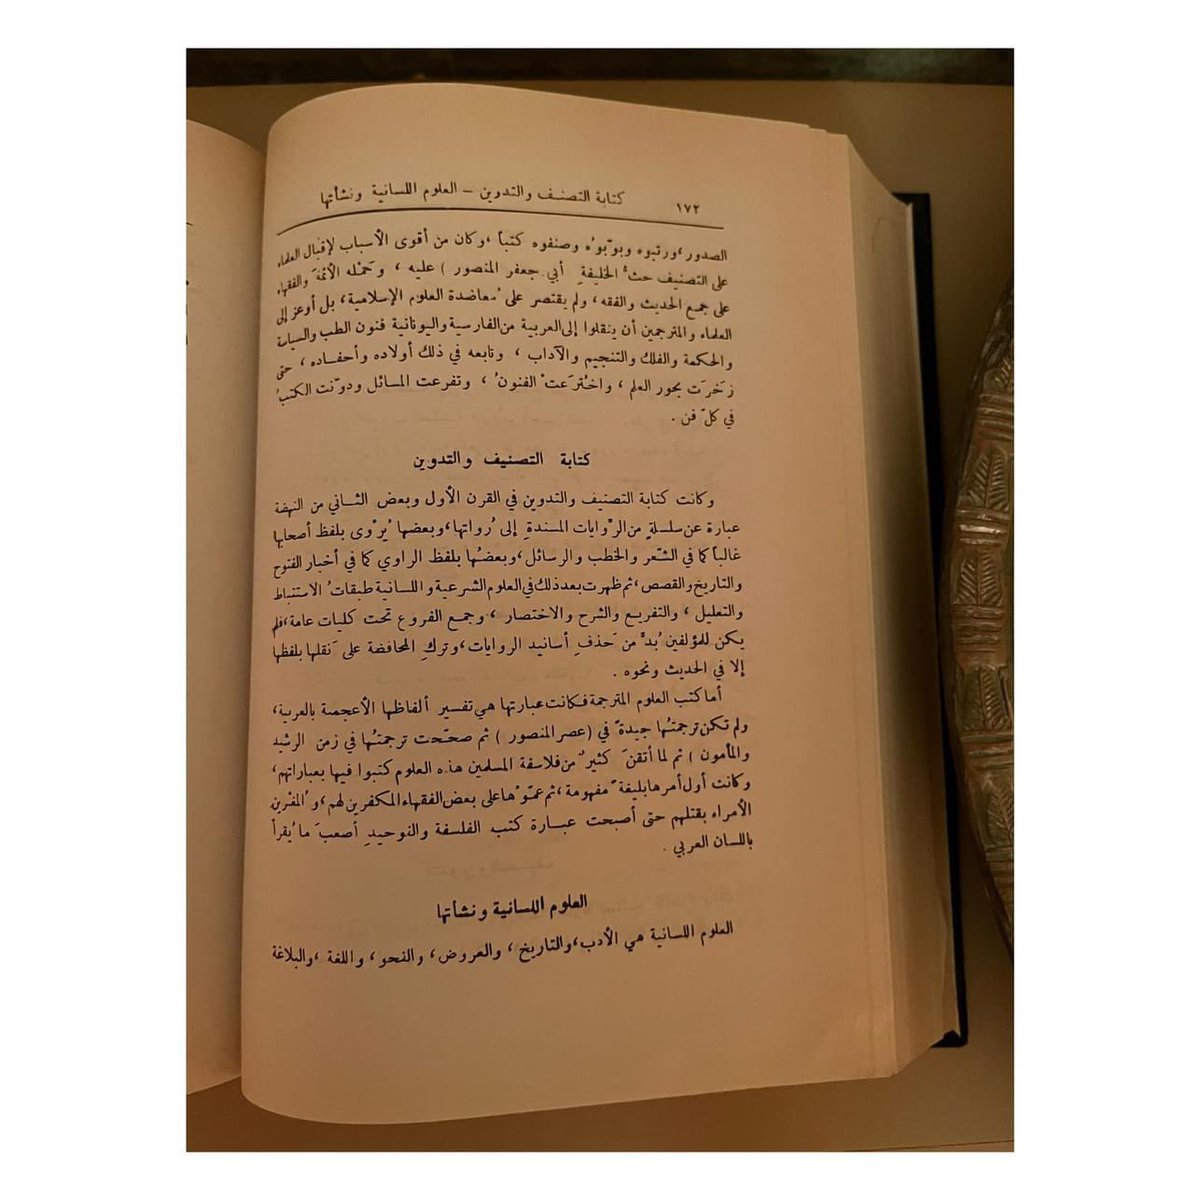 ١٧٢ كتابة التصنيف والتدوين – العلوم اللسانية ونشأتها
الصدور، ورتبوه وبوّبوُه وصنفوه كتباً، وكان من أقوى الأسباب لإقبال العلماء
على التصنيف حثُّ الخليفةِ أبي جعفر المنصور ) عليه ، وحَمْله الأئمةَ والفقهاء
على جمع الحديث والفقه، ولم يقتصر على مُعاضدة العلوم الإسلامية، بل أوعز إلى
العلماء والمترجمين أن ينقلوا إلى العربية من الفارسية واليونانية فنون الطب والسياسة
والحكمة والفلك والتنجيم والآداب ، وتابعه في ذلك أولاده وأحفاده ، حتى
زَخَرَت بحور العلم ، واختُرَعتْ الفنونُ ، وتفرعت المسائل ودوّنت الكتبُ
في كلّ فن .
كتابة التصنيف والتدوين
وكانت كتابة التصنيف والتدوين في القرن الأول وبعض الثاني من النهضة
عبارة عن سلسلةٍ من الرّوايات المسندةِ إلى رُواتها، وبعضها يُرْوى بلفظ أصحابها
غالباً كما في الشّعر والخطب والرسائل، وبعضُها بلفظ الراوي كما في أخبار الفتوح
والتاريخ والقصص، ثم ظهرت بعد ذلك في العلوم الشرعية واللسانية طبقاتُ الاستنباط
والتعليل ، والتفريع والشرح والاختصار ، وجمع الفروع تحت كليات عامة، فلم
يكن للمؤلفين بُدٌّ من حَذفِ أسانيد الروايات، وتركِ المحافضة على نَقلها بلفظها
إلا في الحديث ونحوه .
أما كتب العلوم المترجمة فكانت عبارتها هي تفسير ألفاظها الأعجمية بالعربية،
ولم تكن ترجمتُها جيدةً في (عصر المنصور ) ثم صحّحت ترجمتُها في زمن الرشيد
والمأمون ) ثم لما أتقنَ كثيرٌ من فلاسفة المسلمين هذه العلوم كتبوا فيها بعباراتهم،
وكانت أول أمرها بليغةً مفهومة، ثم عمّوْها على بعض الفقهاء المكفرين لهم، والمُغْرين
الأمراء بقتلهم حتى أصبحت عبارة كتب الفلسفة والتوحيدِ أصعبَ ما يُقرأ
باللسان العربي .
العلوم اللسانية ونشأتها
العلوم اللسانية هي الأدب، والتاريخ، والعروض، والنحو، واللغة، والبلاغة